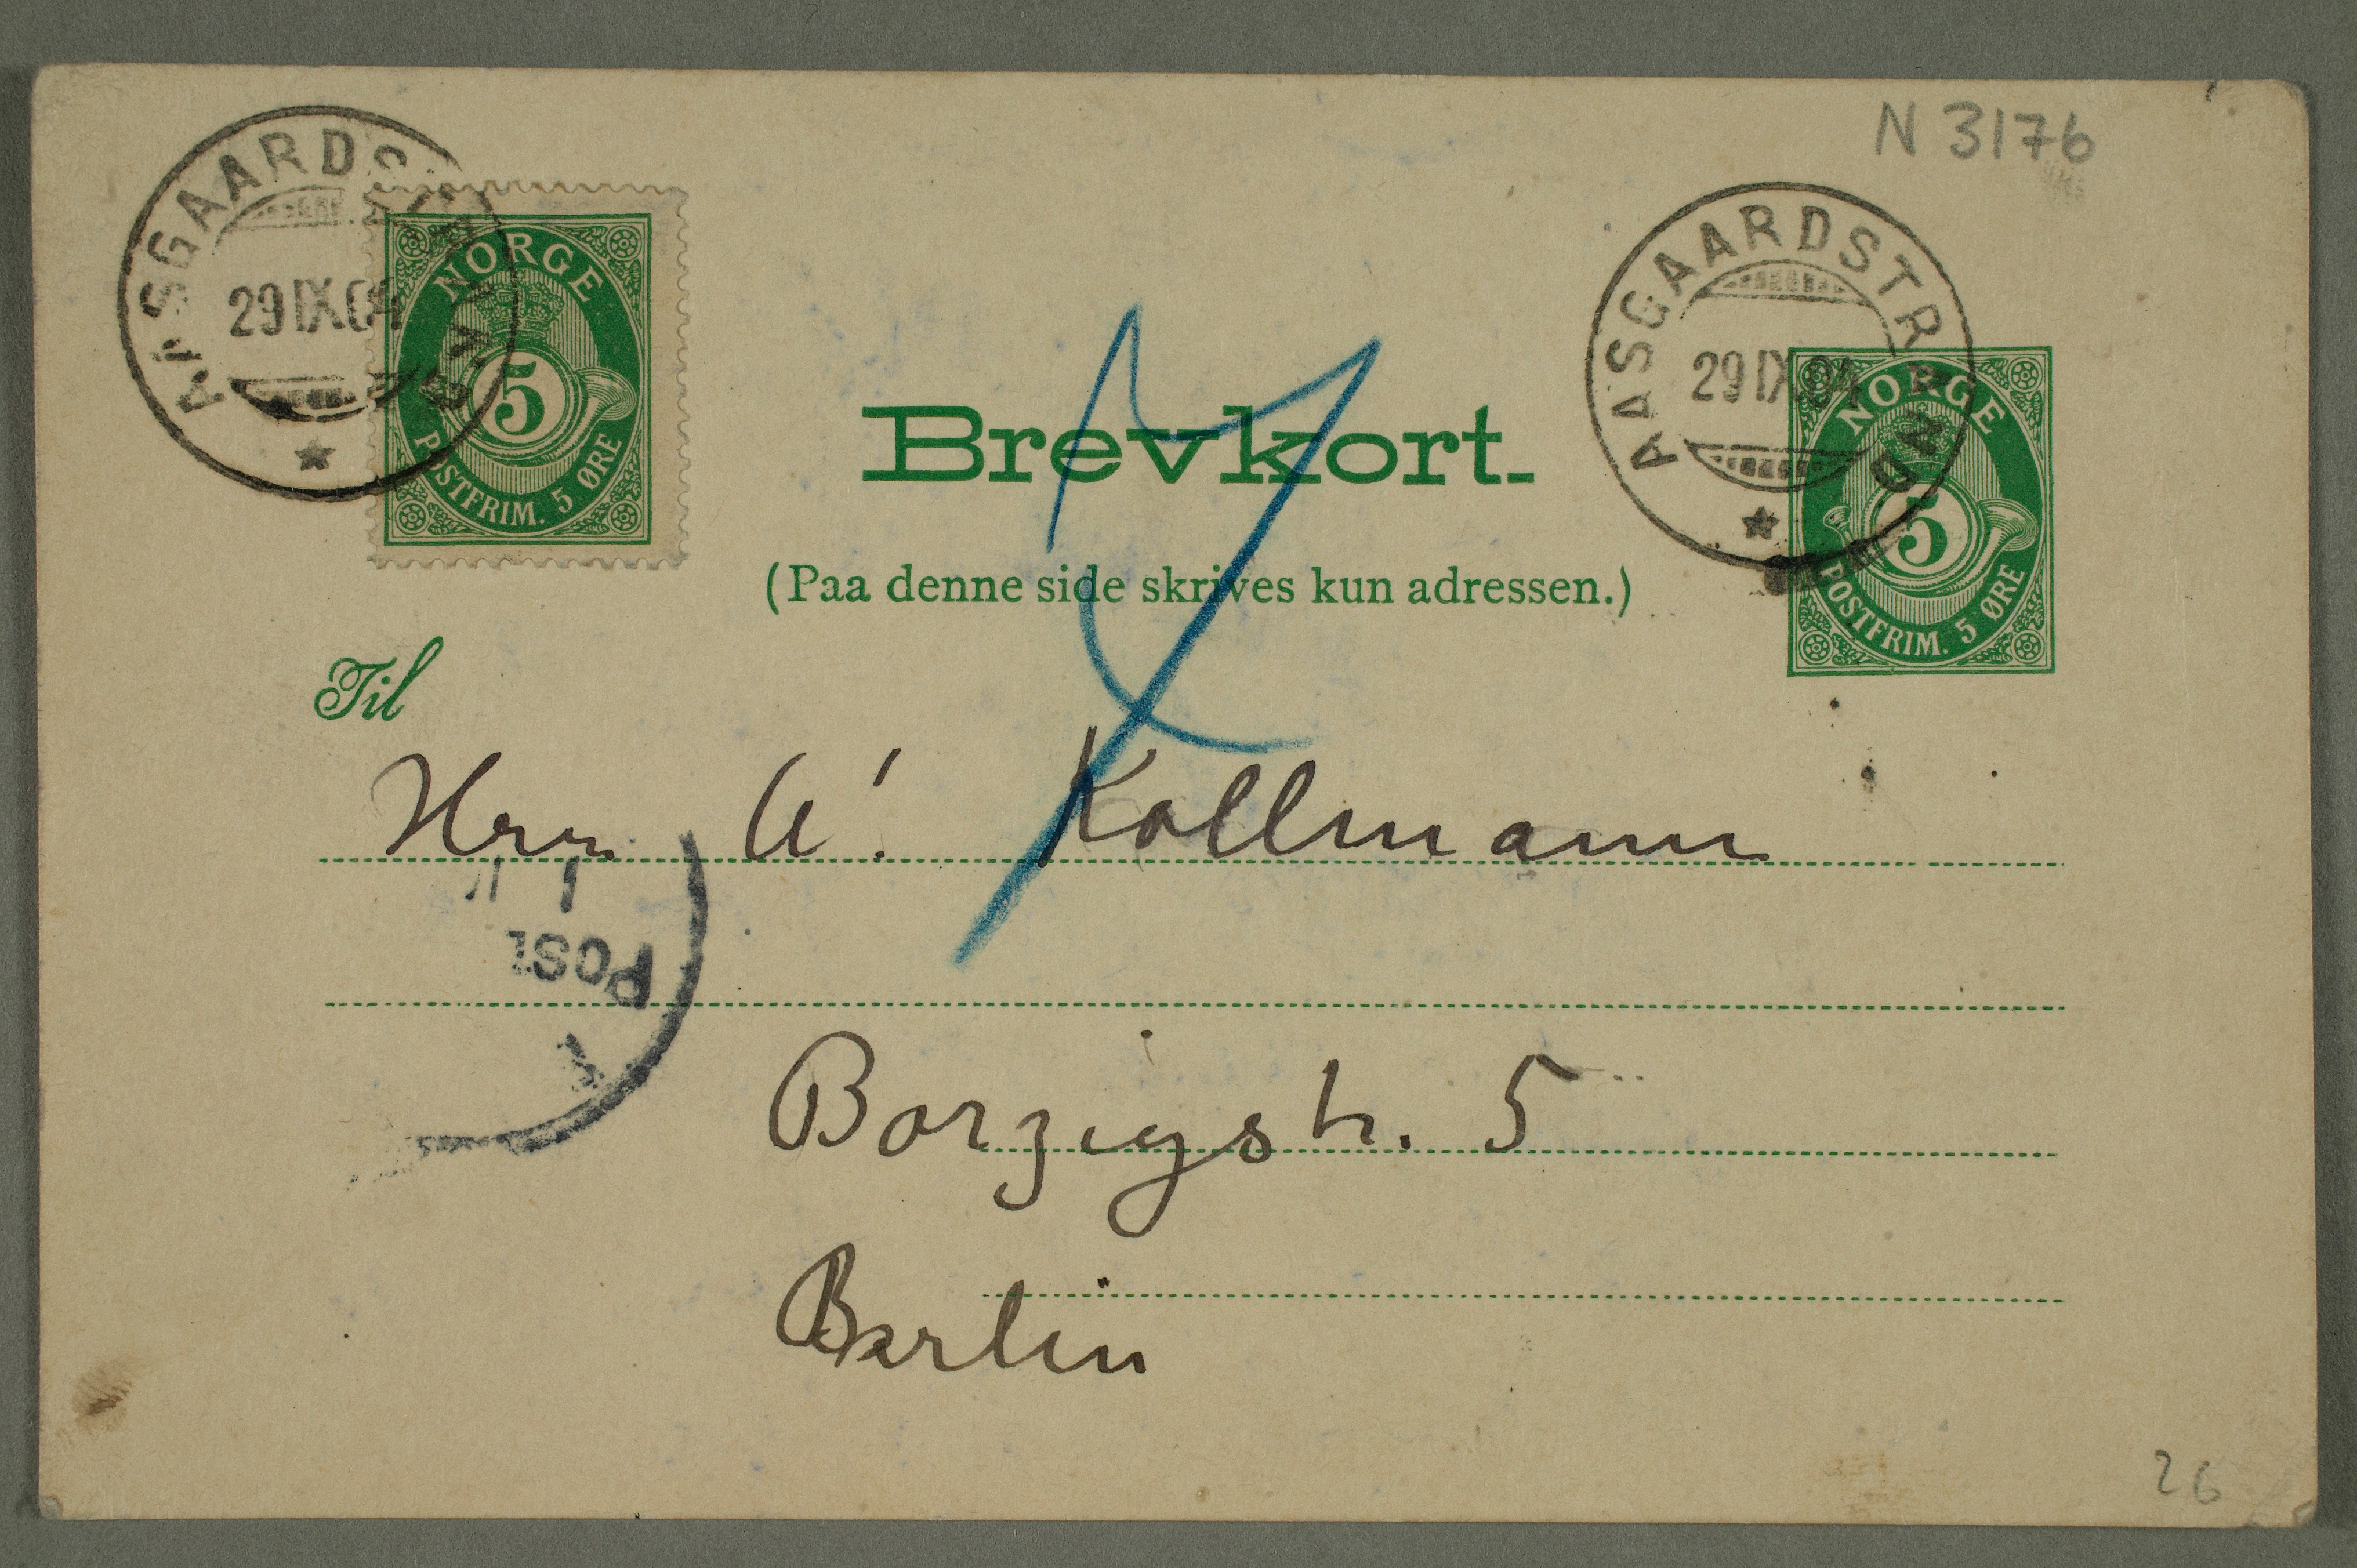 N 3176
AASGAARDSTRAND
29 IX.04
NORGE
5
POSTFRIM. 5 ØRE
AASGAARDSTRAND
29 IX.04
NORGE
5
POSTFRIM. 5 ØRE
Brevkort.
(Paa denne side skrives kun adressen.)
Til
Herr A. Kollmann
Post
Borzigstr. 5
Berlin
26